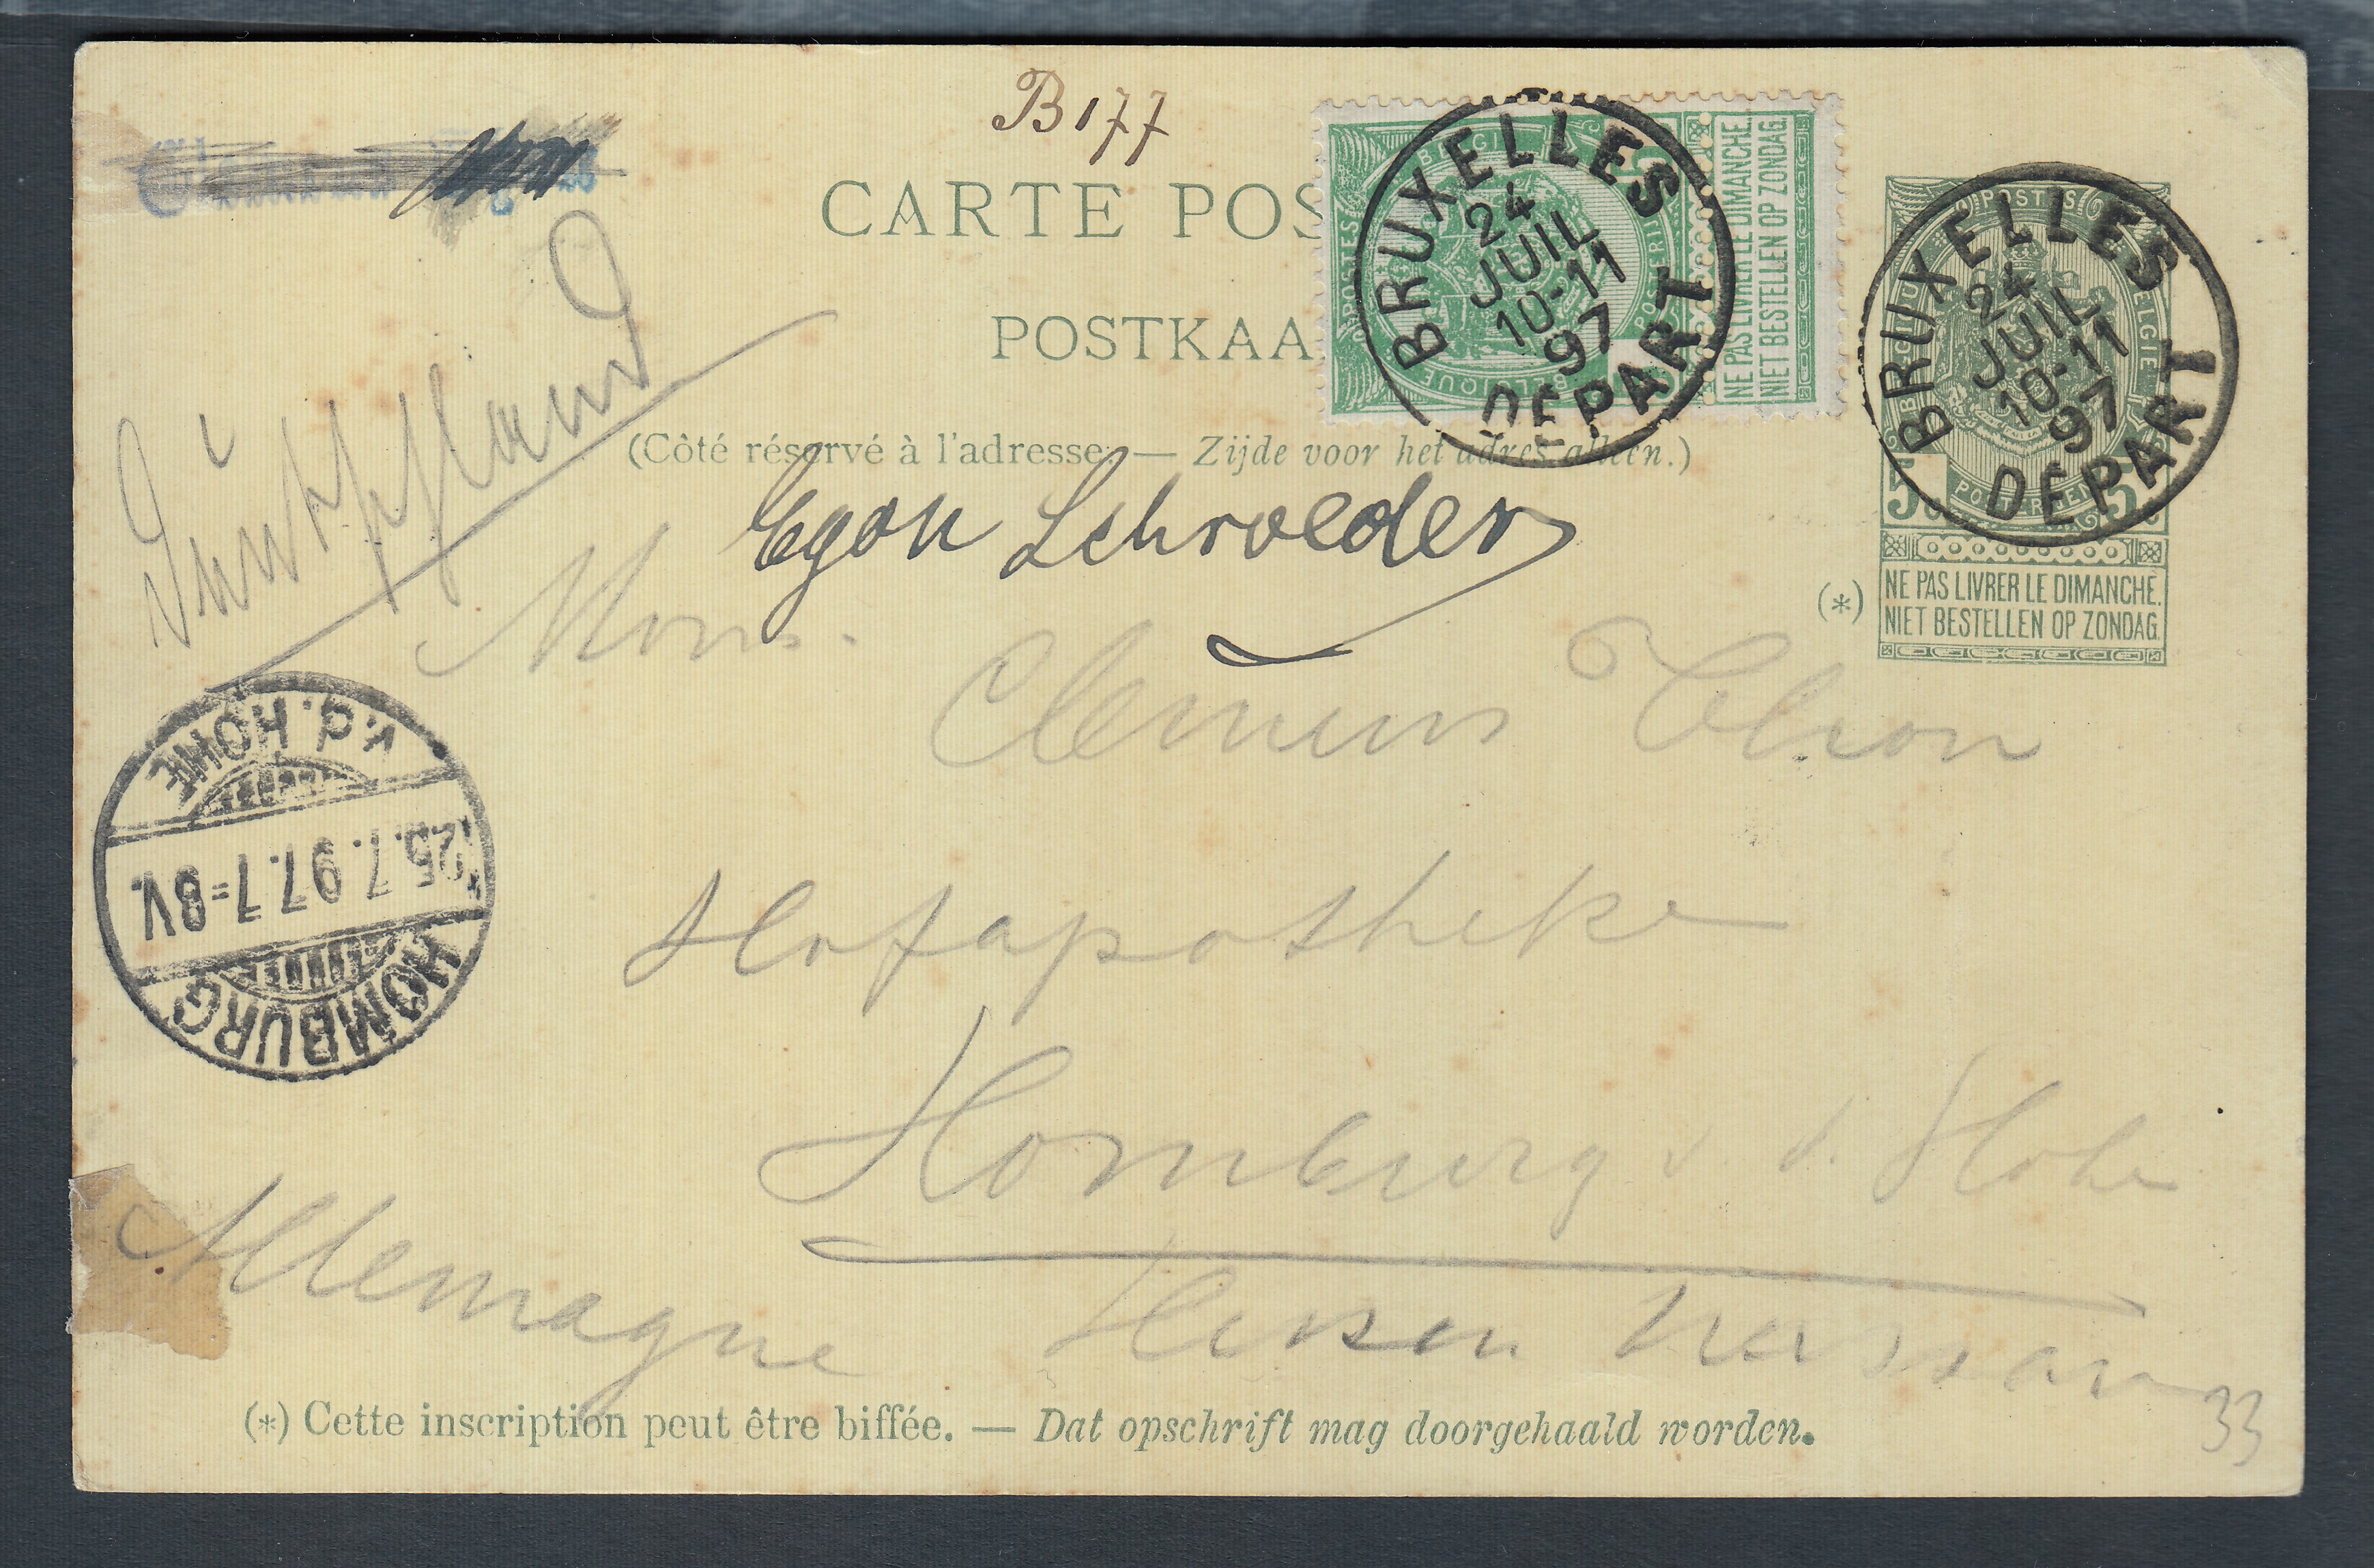 B177
CARTE POS
POSTKAA
(Côté réservé à l'adresse. — Zijde voor het adres alleen.)
Deutschland
Egon Schroeder
Mons.
Clemens
Hofapotheke
Homburg v. d. Höhe
Allemagne Hessen Nassau
(*) Cette inscription peut être biffée. — Dat opschrift mag doorgehaald worden.
33
BRUXELLES
24
JUIL
10-11
97
DEPART
BELGIQUE
POSTES
POSTERIJEN
NE PAS LIVRER LE DIMANCHE.
NIET BESTELLEN OP ZONDAG.
BRUXELLES
24
JUIL
10-11
97
DEPART
POSTES
5 c. 5 c.
(*)
NE PAS LIVRER LE DIMANCHE.
NIET BESTELLEN OP ZONDAG.
HOMBURG
25.7.97.7=8V.
v.d. HÖHE